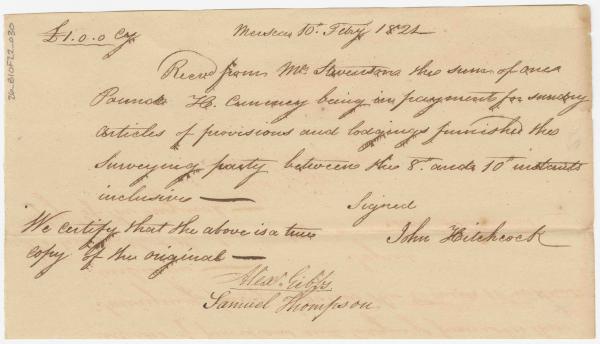 £1.0.0 Cy
10th Feby 1821
Recvd from Mr. Stevenson the sum of one
Pound H. Currency being in payment for sundry
articles of provisions and lodgings furnished the
Surveying party between the 8th and 10th instants
inclusive —
Signed
John Hitchcock
We certify that the above is a true
copy of the original —
Alexr. Gibbs
Samuel Thompson